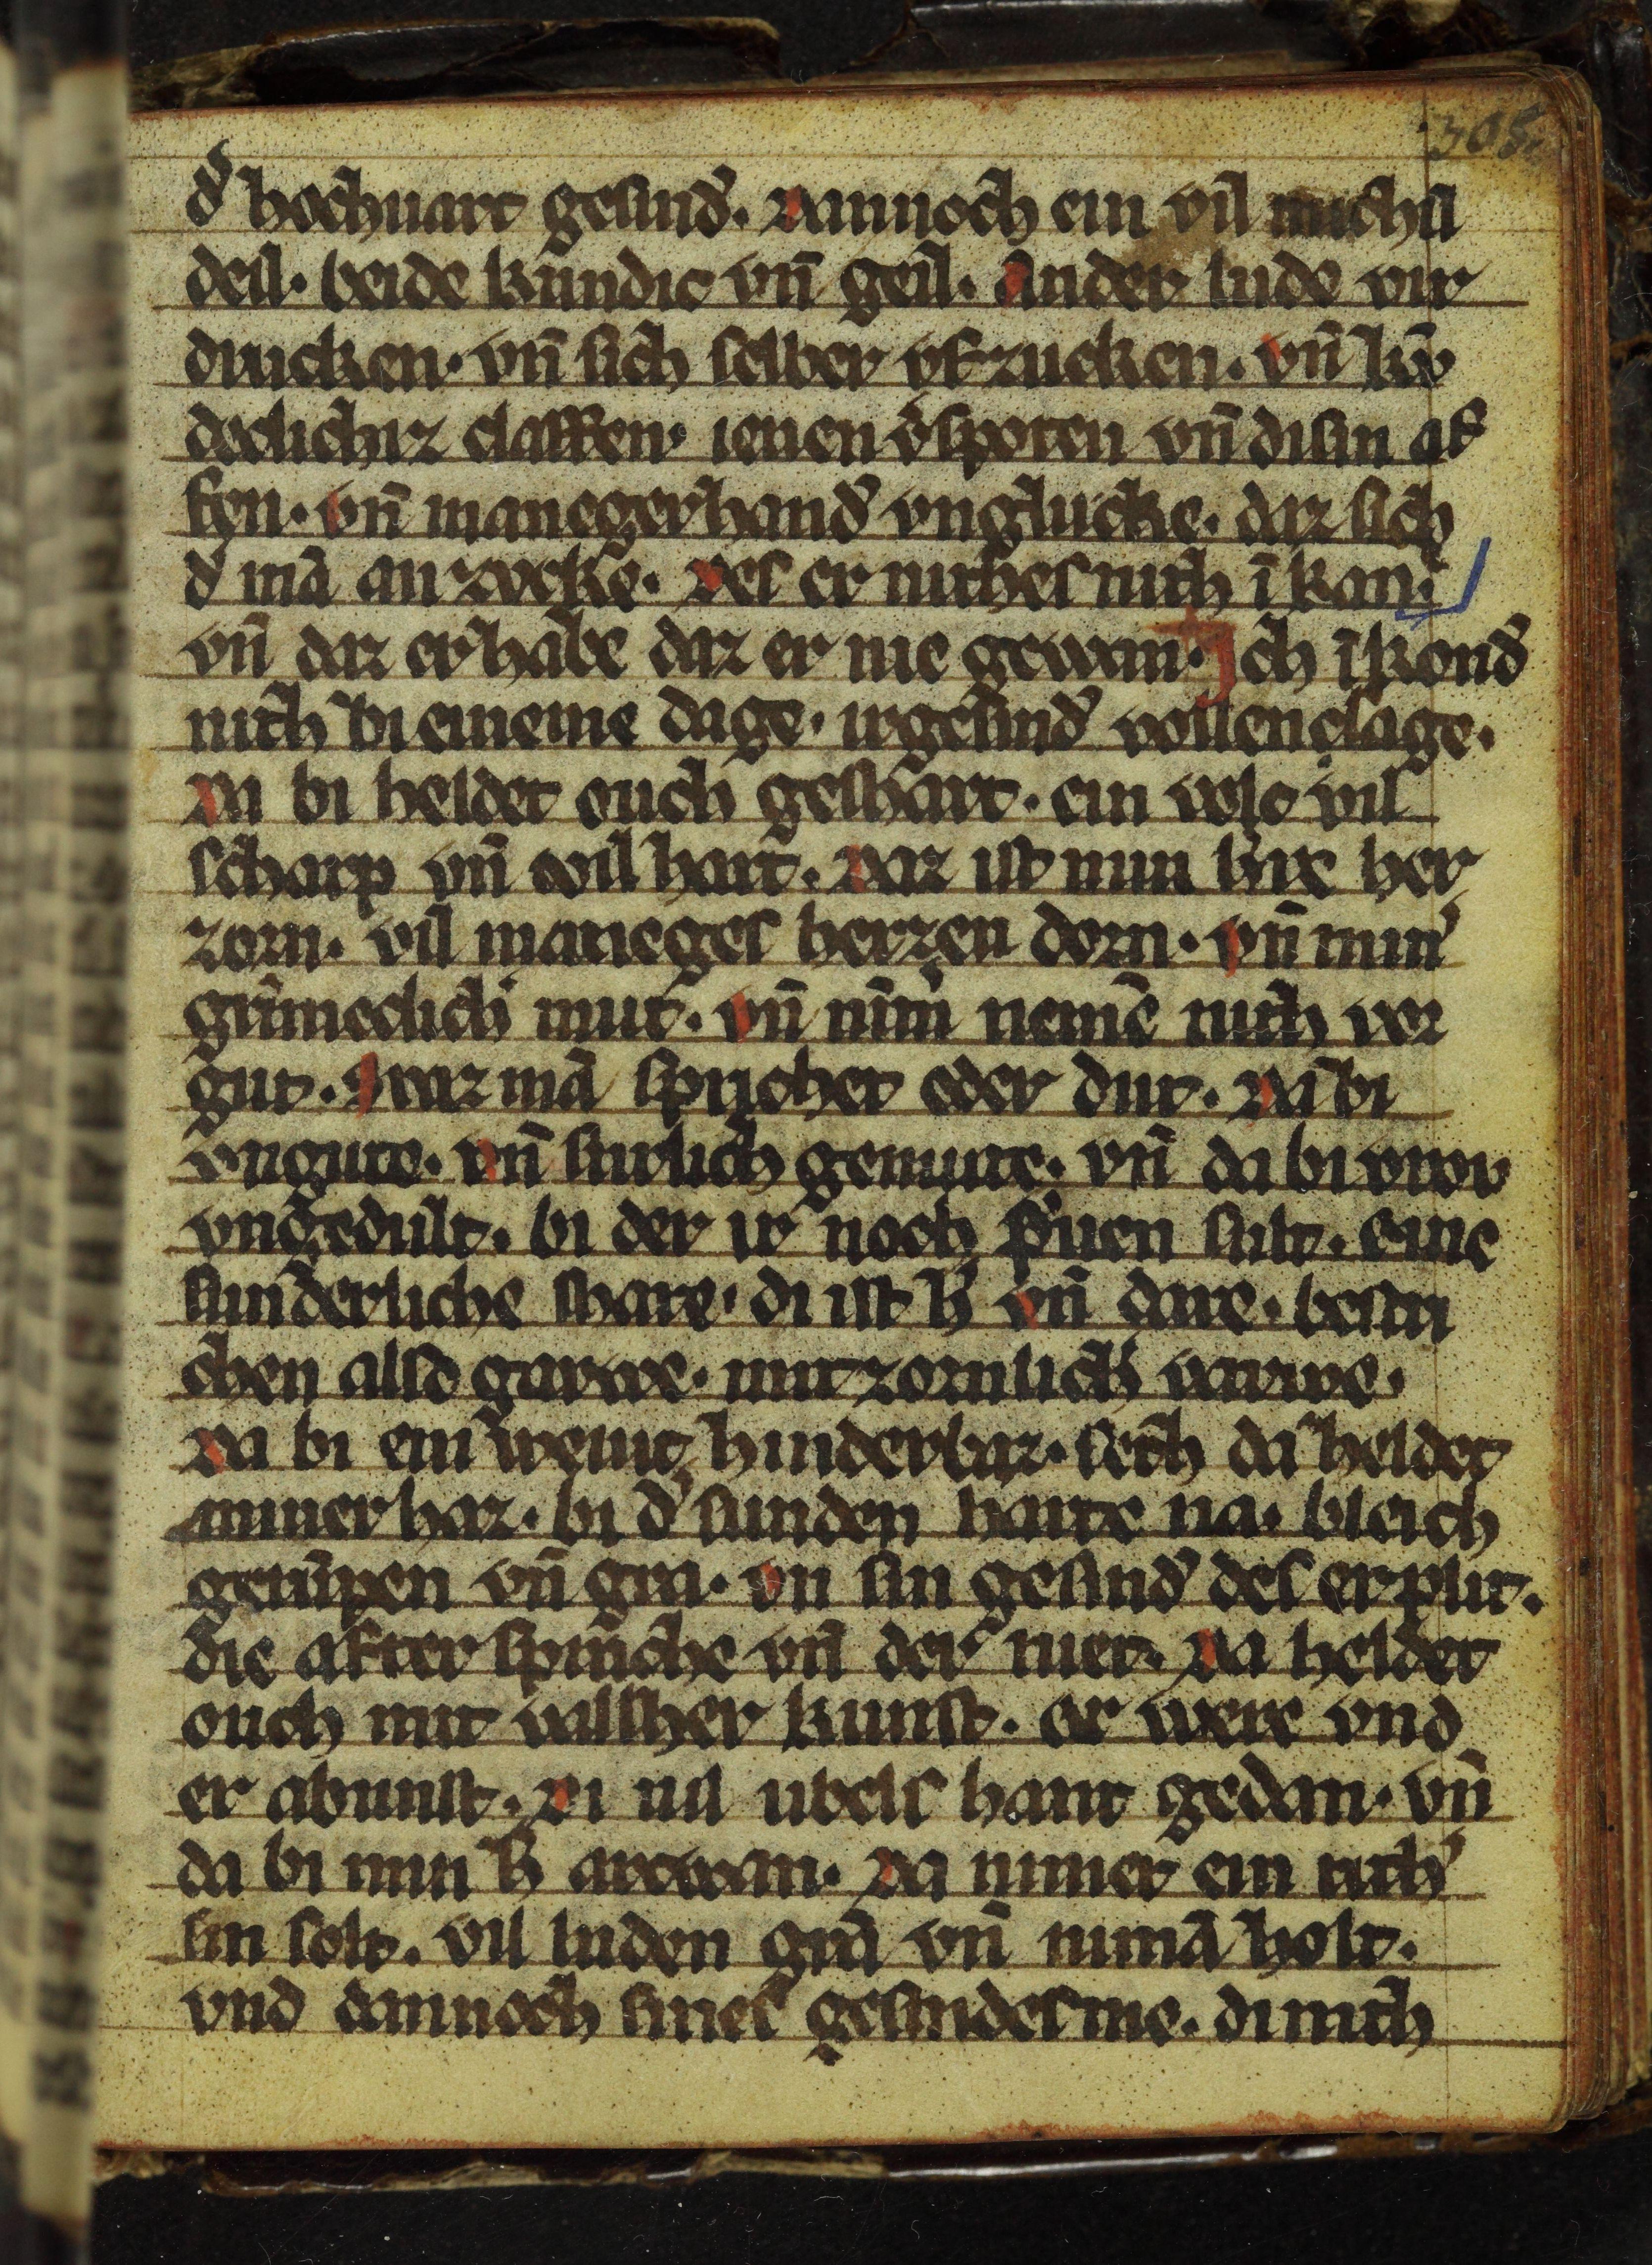 305.
d̛ hochuart gesind̛. Dannoch ein vil michil
deil. beide kundic vn̄ geil. Ander lude vir
drucken. vn̄ sich selber vf zucken. vn̄ kū
declichiz claffen. ienen v̛spoten vn̄ disin af
fen. vn̄ manegerhand̛ vnglucke. daz sich
d̛ mā an zvcke. Des er nithes nith ī kan.
vn̄ daz er habe daz er nie gewan. Jch īkond̛
nith bi eineme dage. ir gesind̛ vollenclage.
Da bi heldet ouch geshart. ein volc vil
scharp vn̄ vil hart. Daz ist min urre her
zorn. vil maneges herzen dorn. vn̄ min̛
grīmeclich̛ mut. vn̄ nīm̛ nemē nith vor
gut. Swaz mā sprichet oder dut. Da bi
vngute. vn̄ surlich gemute. vn̄ da bi vrov
vngedult. bi der ir noch p̛uen sult. eine
sunderliche share. di ist h̛ vn̄ dare. bestri
chen alsd garwe. mit zornlich̛ varwe.
Da bi ein wenic hinderbaz. seth da heldet
min̛ her haz. bi d̛ sunden harte na. bleich
gerūpen vn̄ gra. vn sin gesind̛ des er plit.
die after spruche vn̄ der nier. Da heldet
ouch mit valsher kunst. er were vnd
er abunst. Di uil ubels hant gedan. vn̄
da bi min h̛ arcwan. Da nimer ein rith̛
sin solt. vil luden grā vn̄ nimā holt.
vnd dannoch sines gesindes me. di nith